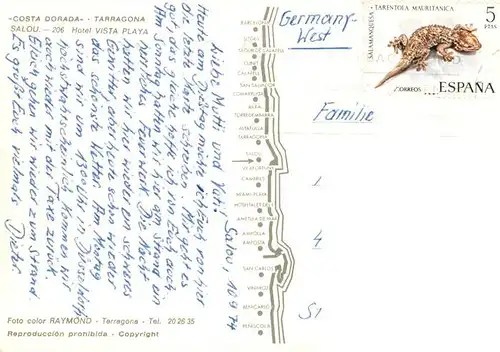 "COSTA DORADA" - TARRAGONA
SALOU. — 206 Hotel VISTA PLAYA
Salou, 10.9.74
Liebe Mutti und Vati
Heute am Dienstag möchte ich Euch von hier
die letzte Karte schreiben. Mir geht es
gut das gleiche hoffe ich von Euch auch
Am Sonntag hatten wir hier am Strand ein
Feuerwerk. Die Nacht
hatten wir hier wieder ein schweres
Gewitter aber heute schon wieder
das schönste Wetter. Am
sind wir um Uhr in Düsseldorf
kommen wir
auch wieder mit der Taxe zurück.
Eben gehen wir wieder zum Strand.
Es grüßt Euch vielmals
Dieter
Foto color RAYMOND - Tarragona - Tel. 20 26 35
Reproducción prohibida - Copyright
BARCELONA
SITGES
CUNIT
CALAFELL
SAN SALVADOR
COMARRUGA
TORREDEMBARRA
ALTAFULLA
TARRAGONA
SALOU
VILAFORTUNY
CAMBRILS
MIAMI-PLAYA
HOSPITALET
AMETLLA DE MAR
AMPOLLA
AMPOSTA
SAN CARLOS
VINAROZ
BENICARLO
PEÑISCOLA
Germany-
West
Familie
1
4
51
SALAMANQUESA - TARENTOLA MAURITANICA
5
PTAS
CORREOS
ESPAÑA